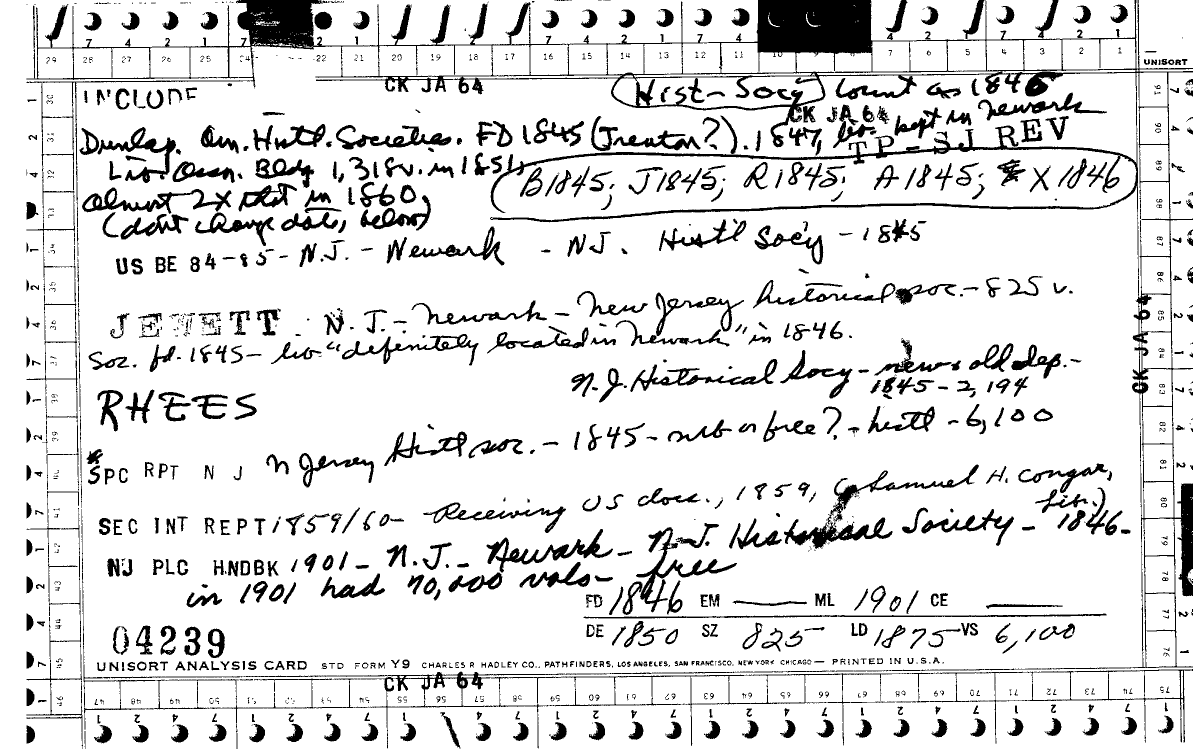 29 28 27 26 25 24 22 21 20 19 18 17 16 15 14 13 12 11 7 6 5 4 3 2 1
UNISORT
CK JA 64
INCLUDE
Hist-Socy count as 1846
CK JA 64
Dunlap. Am. Histl. Societies. FD 1845 (Trenton?). 1847, lib. kept in Newark
TP-SJ REV
Lib. Assn. Bldg 1,318 v. in 1851,
almost 2X that in 1860,
(don't change date, below)
B1845; J1845; R1845; A1845; X1846
US BE 84-85 - N.J. - Newark - NJ. Histl Socy - 1845
JEWETT N.J. - Newark - New Jersey historical soc. - 825 v.
Soc. fd. 1845 - lib "definitely located in Newark" in 1846.
N.J. Historical Socy - news old dep. -
1845 - 2,194
RHEES
SPC RPT N J N Jersey Histl soc. - 1845 - sub or free? - histl - 6,100
SEC INT REPT 1859/60 - Receiving US docs., 1859, (Samuel H. Congar, Lib.)
NJ PLC HNDBK 1901 - N.J. - Newark - N.J. Historical Society - 1846 -
in 1901 had 70,000 vols - free
FD 1846 EM — ML 1901 CE —
DE 1850 SZ 825 LD 1875 VS 6,100
04239
UNISORT ANALYSIS CARD STD FORM Y9 CHARLES R HADLEY CO., PATHFINDERS, LOS ANGELES, SAN FRANCISCO, NEW YORK CHICAGO — PRINTED IN U.S.A.
CK JA 64
CK JA 64